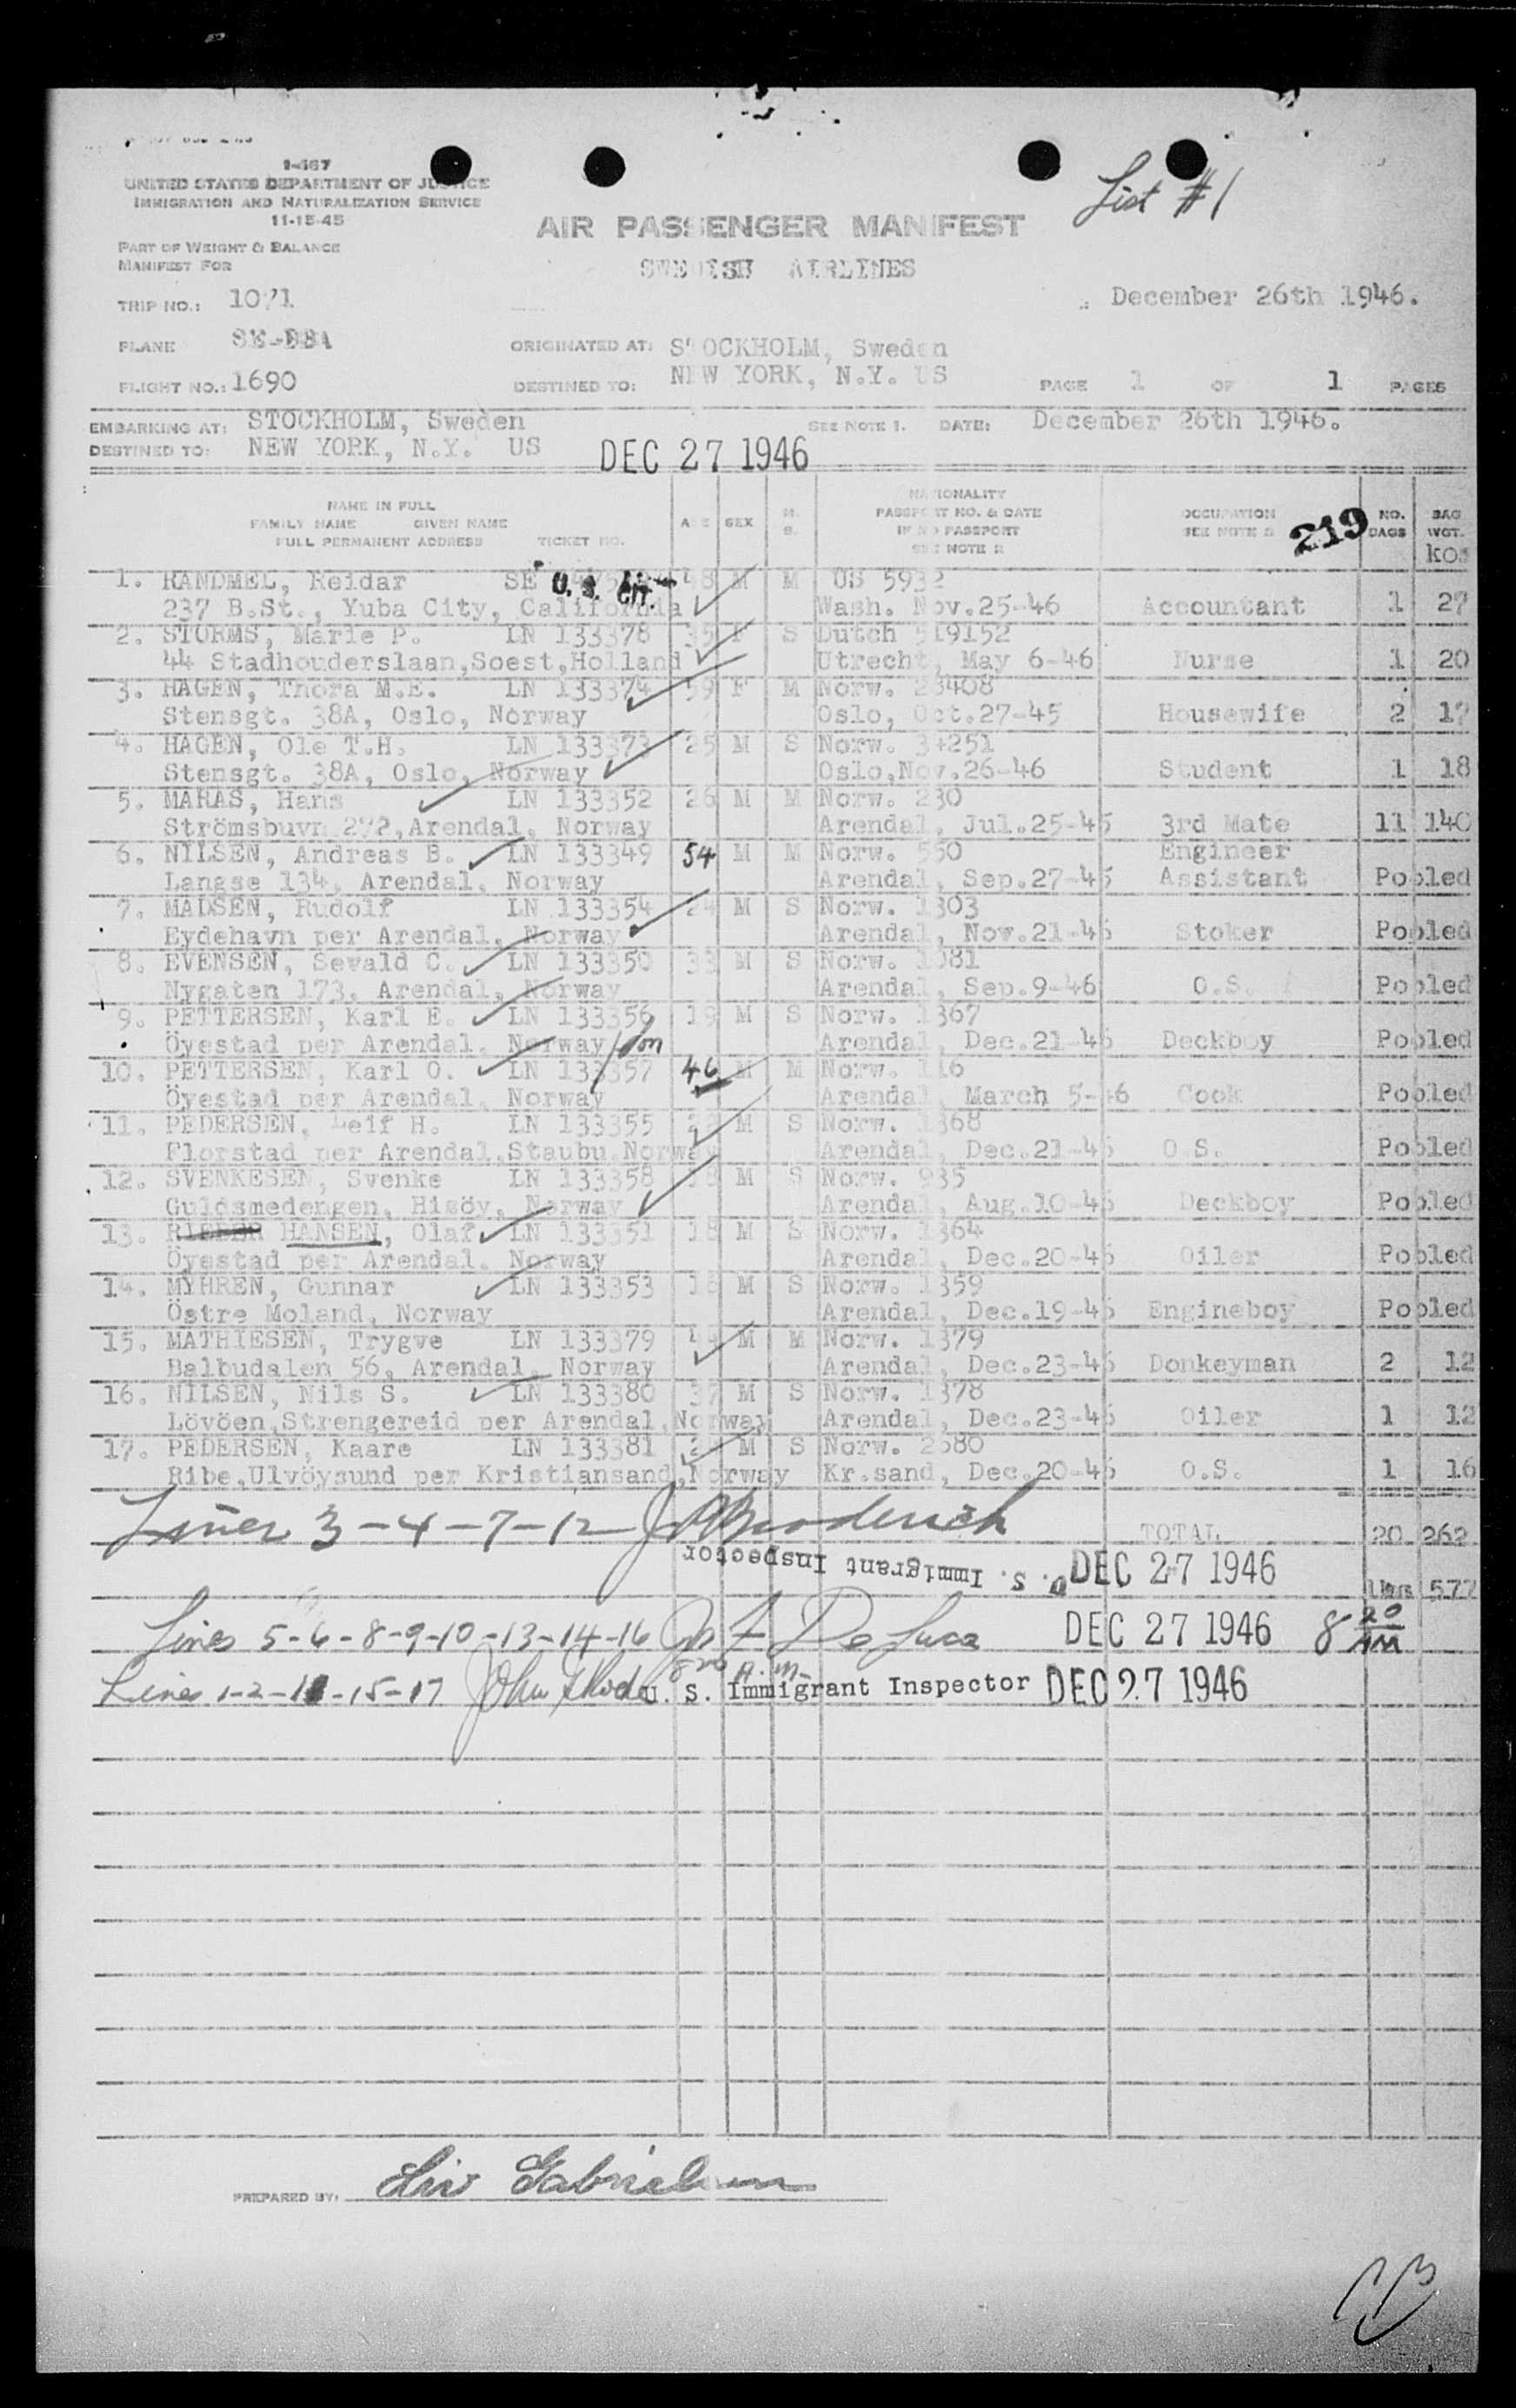 1-467
UNITED STATES DEPARTMENT OF JUSTICE
IMMIGRATION AND NATURALIZATION SERVICE
11-15-45
List #1
AIR PASSENGER MANIFEST
PART OF WEIGHT & BALANCE
MANIFEST FOR
SWEDISH AIRLINES
TRIP NO.: 1071
December 26th 1946.
PLANE SE-BBA
ORIGINATED AT: STOCKHOLM, Sweden
FLIGHT NO.: 1690
DESTINED TO: NEW YORK, N.Y. US
PAGE 1 OF 1 PAGES
EMBARKING AT: STOCKHOLM, Sweden
SEE NOTE 1. DATE: December 26th 1946.
DESTINED TO: NEW YORK, N.Y. US
DEC 27 1946
NAME IN FULL
FAMILY NAME GIVEN NAME
FULL PERMANENT ADDRESS TICKET NO.
AGE SEX M. S.
NATIONALITY
PASSPORT NO. & DATE
IF NO PASSPORT
SEE NOTE 2
OCCUPATION
SEE NOTE 2
219
NO. BAGS
BAG. WGT.
kos
1. RANDMEL, Reidar SE U.S. Cit. 48 M M US 5932
237 B.St., Yuba City, California Wash. Nov.25-46 Accountant 1 27
2. STORMS, Marie P. LN 133378 35 F S Dutch 519152
44 Stadhouderslaan,Soest,Holland Utrecht, May 6-46 Nurse 1 20
3. HAGEN, Thora M.E. LN 133374 59 F M Norw. 23408
Stensgt. 38A, Oslo, Norway Oslo, Oct.27-45 Housewife 2 17
4. HAGEN, Ole T.H. LN 133373 25 M S Norw. 34251
Stensgt. 38A, Oslo, Norway Oslo,Nov.26-46 Student 1 18
5. MARAS, Hans LN 133352 26 M M Norw. 230
Strömsbuvn 272,Arendal, Norway Arendal, Jul.25-45 3rd Mate 11 140
6. NILSEN, Andreas B. LN 133349 54 M M Norw. 550 Engineer
Langse 134, Arendal, Norway Arendal, Sep.27-45 Assistant Pooled
7. MADSEN, Rudolf LN 133354 24 M S Norw. 1303
Eydehavn per Arendal, Norway Arendal, Nov.21-46 Stoker Pooled
8. EVENSEN, Sevald C. LN 133350 33 M S Norw. 1081
Nygaten 173, Arendal, Norway Arendal, Sep.9-46 O.S. Pooled
9. PETTERSEN, Karl E. LN 133356 19 M S Norw. 1367
Öyestad per Arendal. Norway Arendal, Dec.21-46 Deckboy Pooled
10. PETTERSEN, Karl O. LN 133357 46 M M Norw. 116
Öyestad per Arendal, Norway Arendal, March 5-46 Cook Pooled
11. PEDERSEN, Leif H. LN 133355 22 M S Norw. 1368
Florstad per Arendal,Staubu,Norway Arendal, Dec.21-46 O.S. Pooled
12. SVENKESEN, Svenke LN 133358 18 M S Norw. 935
Guldsmedengen, Hisöy, Norway Arendal, Aug.10-46 Deckboy Pooled
13. HANSEN, Olaf LN 133351 18 M S Norw. 1364
Öyestad per Arendal. Norway Arendal, Dec.20-46 Oiler Pooled
14. MYHREN, Gunnar LN 133353 18 M S Norw. 1359
Östre Moland, Norway Arendal, Dec.19-46 Engineboy Pooled
15. MATHIESEN, Trygve LN 133379 M M Norw. 1379
Balbudalen 56, Arendal, Norway Arendal, Dec.23-46 Donkeyman 2 12
16. NILSEN, Nils S. LN 133380 37 M S Norw. 1378
Lövöen,Strengereid per Arendal,Norway Arendal, Dec.23-46 Oiler 1 12
17. PEDERSEN, Kaare LN 133381 M S Norw. 2580
Ribe,Ulvöysund per Kristiansand,Norway Kr.sand, Dec.20-46 O.S. 1 16
Lines 3-4-7-12 J Broderick
TOTAL 20 262
U. S. Immigrant Inspector DEC 27 1946
577
Lines 5-6-8-9-10-13-14-16 Jos F De Luca DEC 27 1946 8 20 AM
8 20 A.M.
Lines 1-2-11-15-17 John U. S. Immigrant Inspector DEC 27 1946
PREPARED BY: Liv Gabrielsen